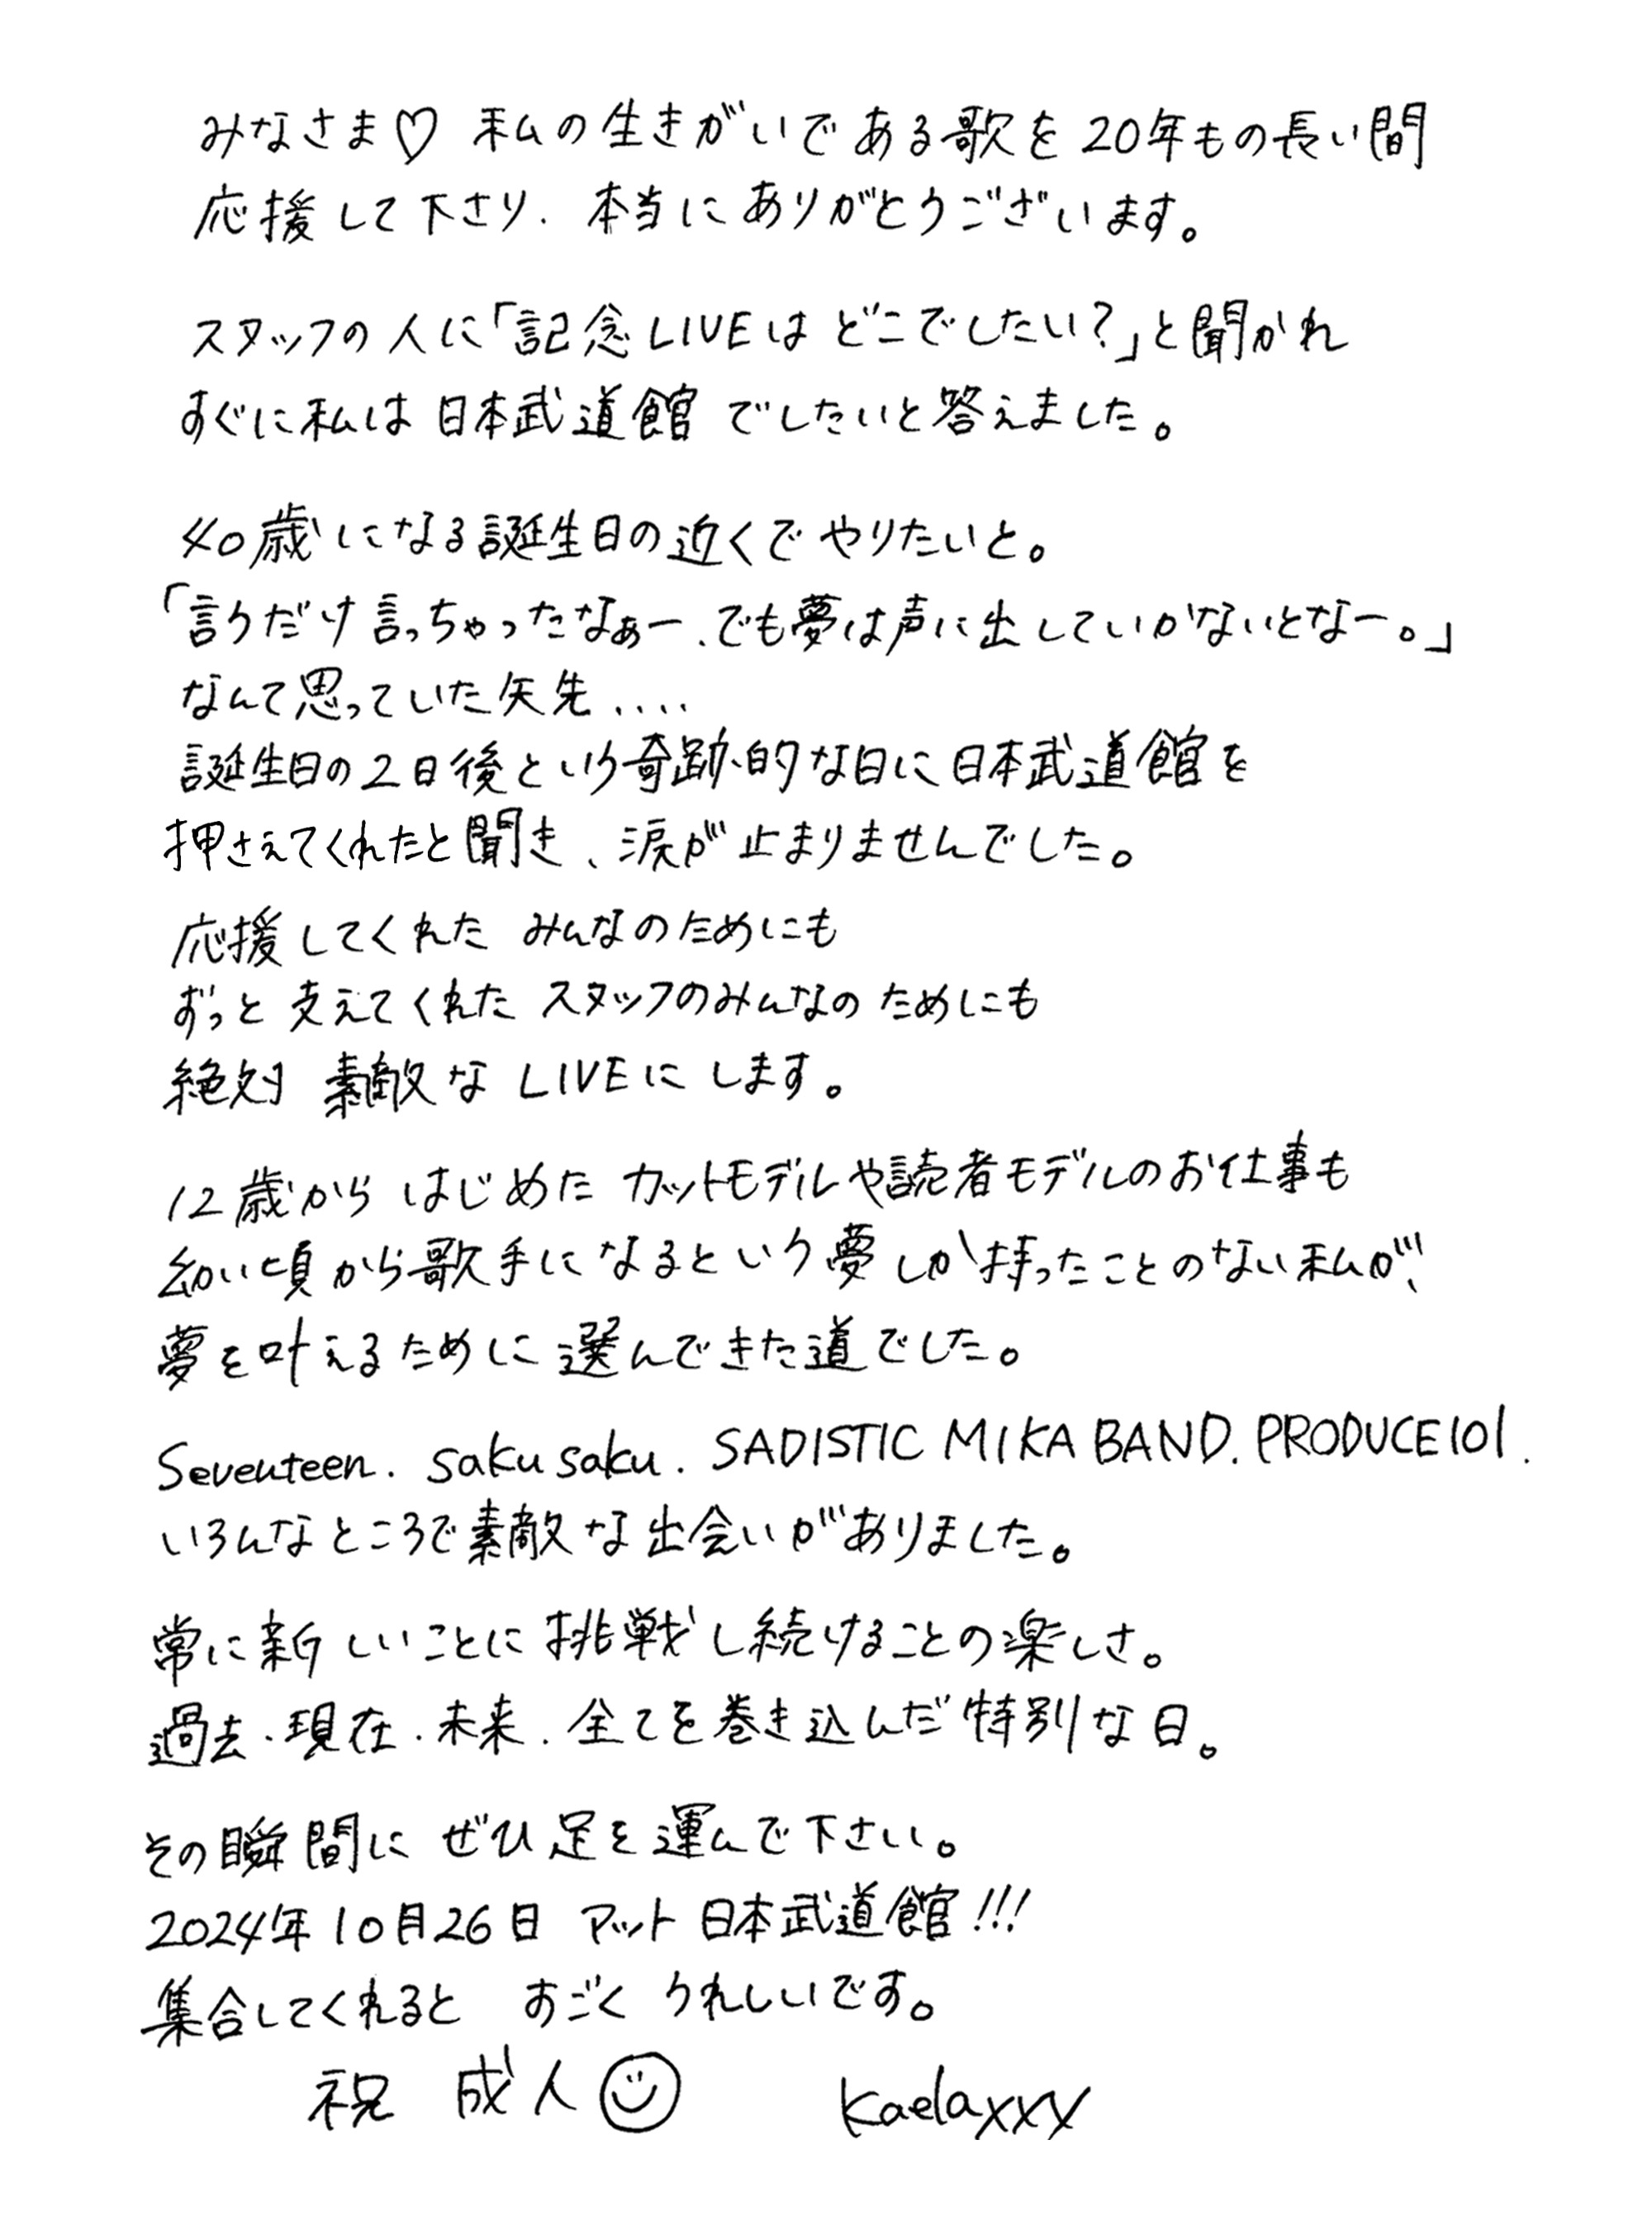 みなさま♡ 私の生きがいである歌を20年もの長い間
応援して下さり、本当にありがとうございます。
スタッフの人に「記念LIVEはどこでしたい?」と聞かれ
すぐに私は日本武道館でしたいと答えました。
40歳になる誕生日の近くでやりたいと。
「言うだけ言っちゃったなぁー、でも夢は声に出していかないとなー。」
なんて思っていた矢先....
誕生日の2日後という奇跡的な日に日本武道館を
押さえてくれたと聞き、涙が止まりませんでした。
応援してくれた みんなのためにも
ずっと支えてくれた スタッフのみんなの ためにも
絶対 素敵な LIVEに します。
12歳から はじめた カットモデルや読者モデルのお仕事も
幼い頃から歌手になるという夢しか持ったことのない私が、
夢を叶えるために選んできた道でした。
Seventeen. saku saku. SADISTIC MIKA BAND. PRODUCE101.
いろんなところで素敵な出会いがありました。
常に新しいことに挑戦し続けることの楽しさ。
過去.現在.未来.全てを巻き込んだ特別な日。
その瞬間に ぜひ足を運んで下さい。
2024年10月26日 アット 日本武道館!!!
集合してくれると すごく うれしいです。
祝 成人☺ Kaelaxxx